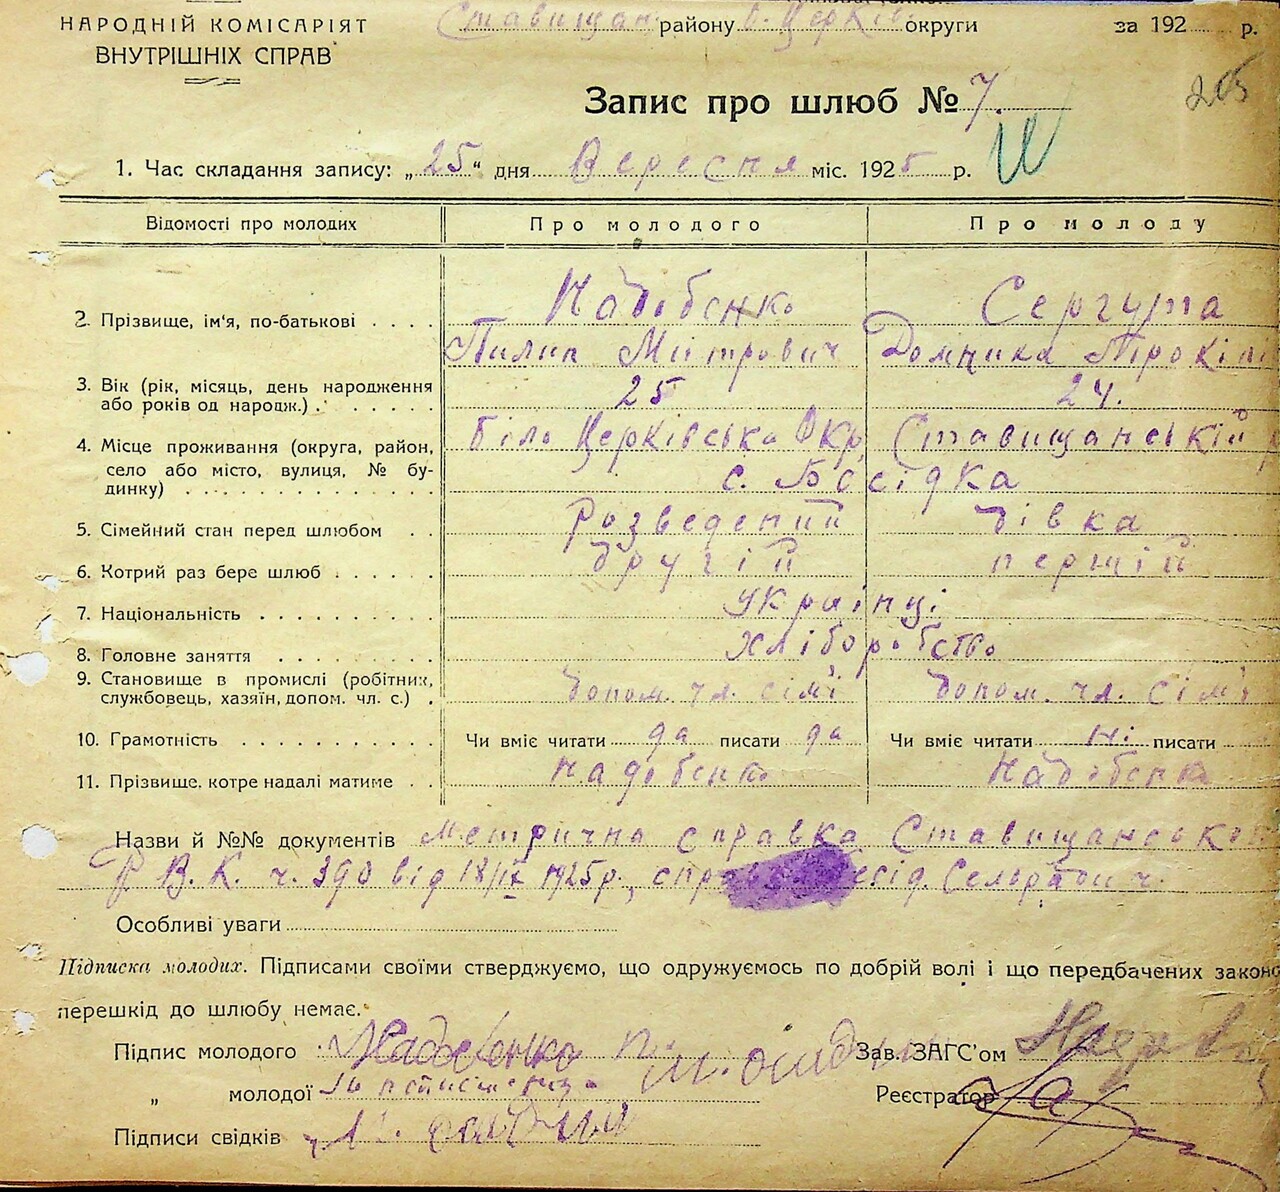 НАРОДНІЙ КОМІСАРІЯТ
ВНУТРІШНІХ СПРАВ
Ставищан району Б. Церків округи за 192 р.
205
Запис про шлюб № 7.
1. Час складання запису: „25" дня Вересня міс. 1925 р.
Відомості про молодих Про молодого Про молоду
2. Прізвище, ім'я, по-батькові . . . . Надобенко Сергута
Пилип Митрович Домника Прокіп
3. Вік (рік, місяць, день народження або років од народж.) . . . . . . 25 24.
4. Місце проживання (округа, район, Біло Церківська Окр, Ставищанський р
село або місто, вулиця, № бу-
динку) . . . . . . . . . . . . с. Босідка
5. Сімейний стан перед шлюбом . . Розведений дівка
6. Котрий раз бере шлюб . . . . . другій першій
7. Національність . . . . . . . . . українці
8. Головне заняття . . . . . . . . хліборобство
9. Становище в промислі (робітник, службовець, хазяїн, допом. чл. с.) . допом. чл. сім'ї допом. чл. сім'ї
10. Грамотність . . . . . . . . . . Чи вміє читати да писати да Чи вміє читати ні писати
11. Прізвище, котре надалі матиме . . Надобенко Надобенко
Назви й №№ документів Метрична справка Ставищанського
Р.В.К. ч. 390 від 18/IX 1925р., Сельради ч.
Особливі уваги
Підписка молодих. Підписами своїми стверджуємо, що одружуємось по добрій волі і що передбачених законо
перешкід до шлюбу немає.
Підпис молодого Надобенко П. Зав. ЗАГС'ом
„ молодої Реєстратор
Підписи свідків